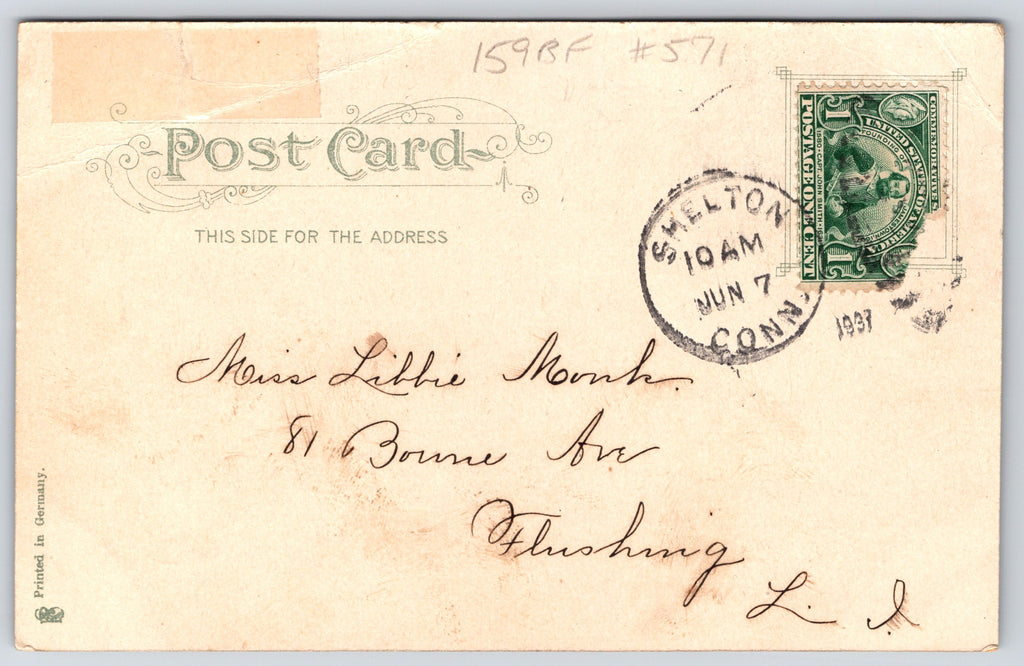 159BF #571
Post Card
THIS SIDE FOR THE ADDRESS
COMMEMORATIVE SERIES
UNITED STATES OF AMERICA
FOUNDING OF
1580 • CAPT. JOHN SMITH
1 POSTAGE ONE CENT 1
SHELTON
10 AM
JUN 7
CONN.
1907
Miss Libbie Monk.
81 Bowne Ave
Flushing
L. I
Printed in Germany.